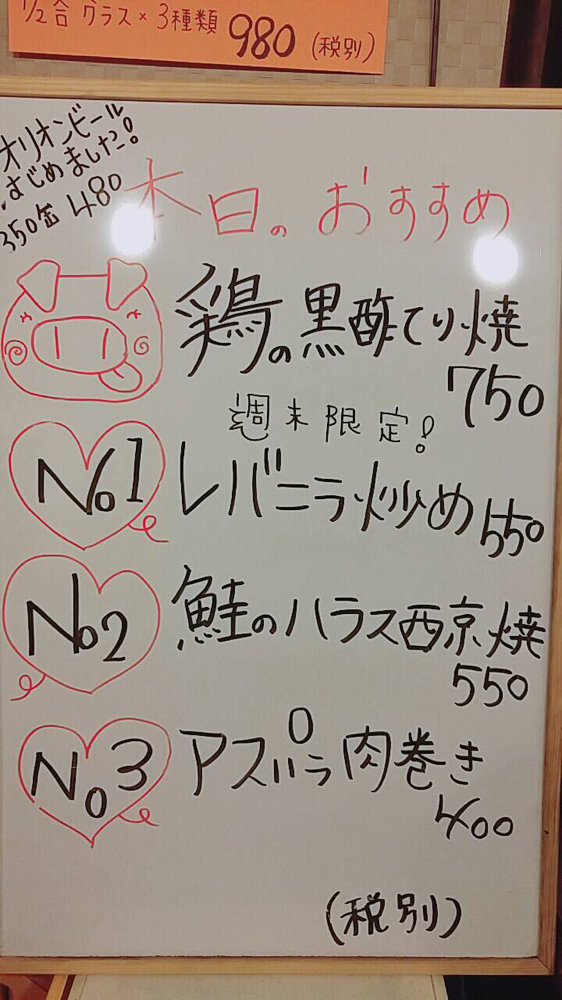 1/2合 グラス×3種類 980 (税別)
オリオンビール
はじめました!
350缶 480
本日のおすすめ
鶏の黒酢てり焼
750
週末限定!
No1 レバニラ炒め 550
No2 鮭のハラス西京焼
550
No3 アスパラ肉巻き
400
(税別)